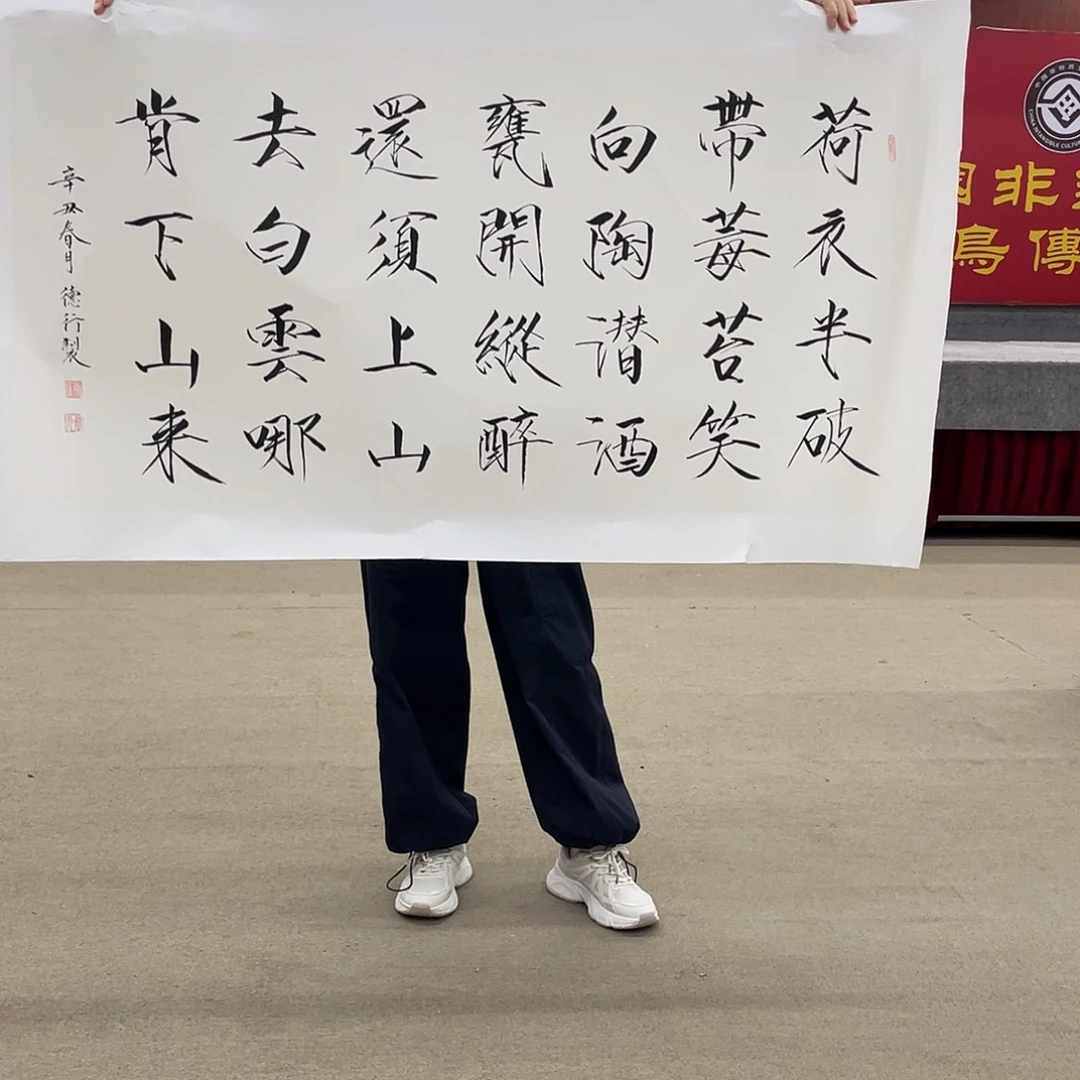 荷衣半破
帶莓苔笑
向陶潜酒
甕開縱醉
還須上山
去白雲哪
肯下山来
辛丑春月 德行製
国非
鳥傳
CHINA INTANGIBLE CULTU